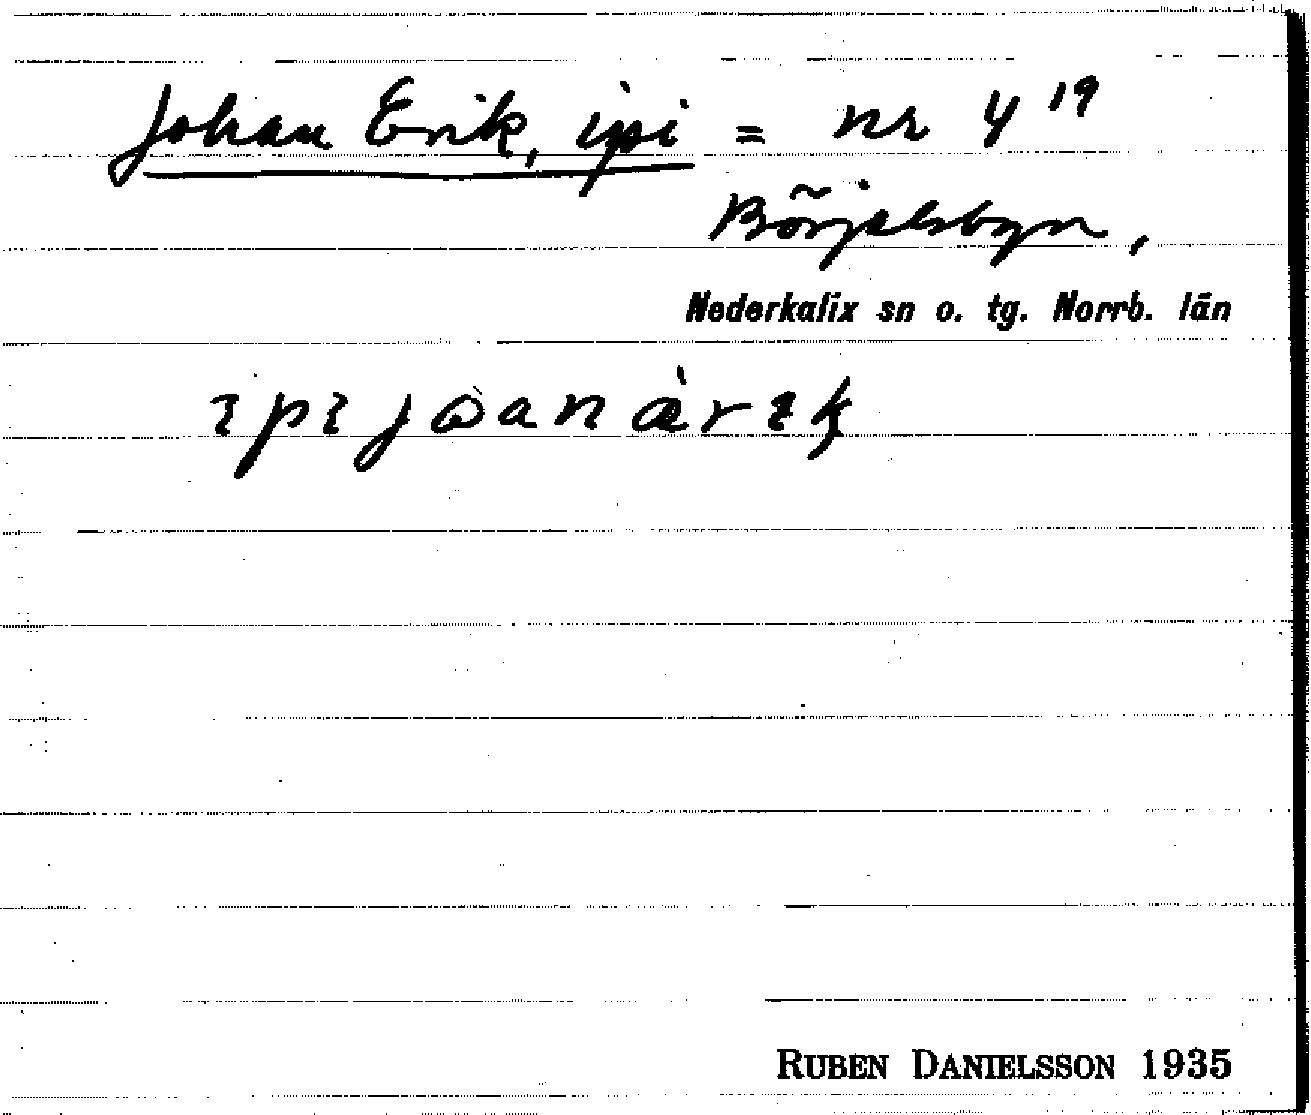 Johan Erik, ipi = nr 4 19
Börjelsbyn,
Nederkalix sn o. tg. Norrb. län
ipi jåanärik
RUBEN DANIELSSON 1935